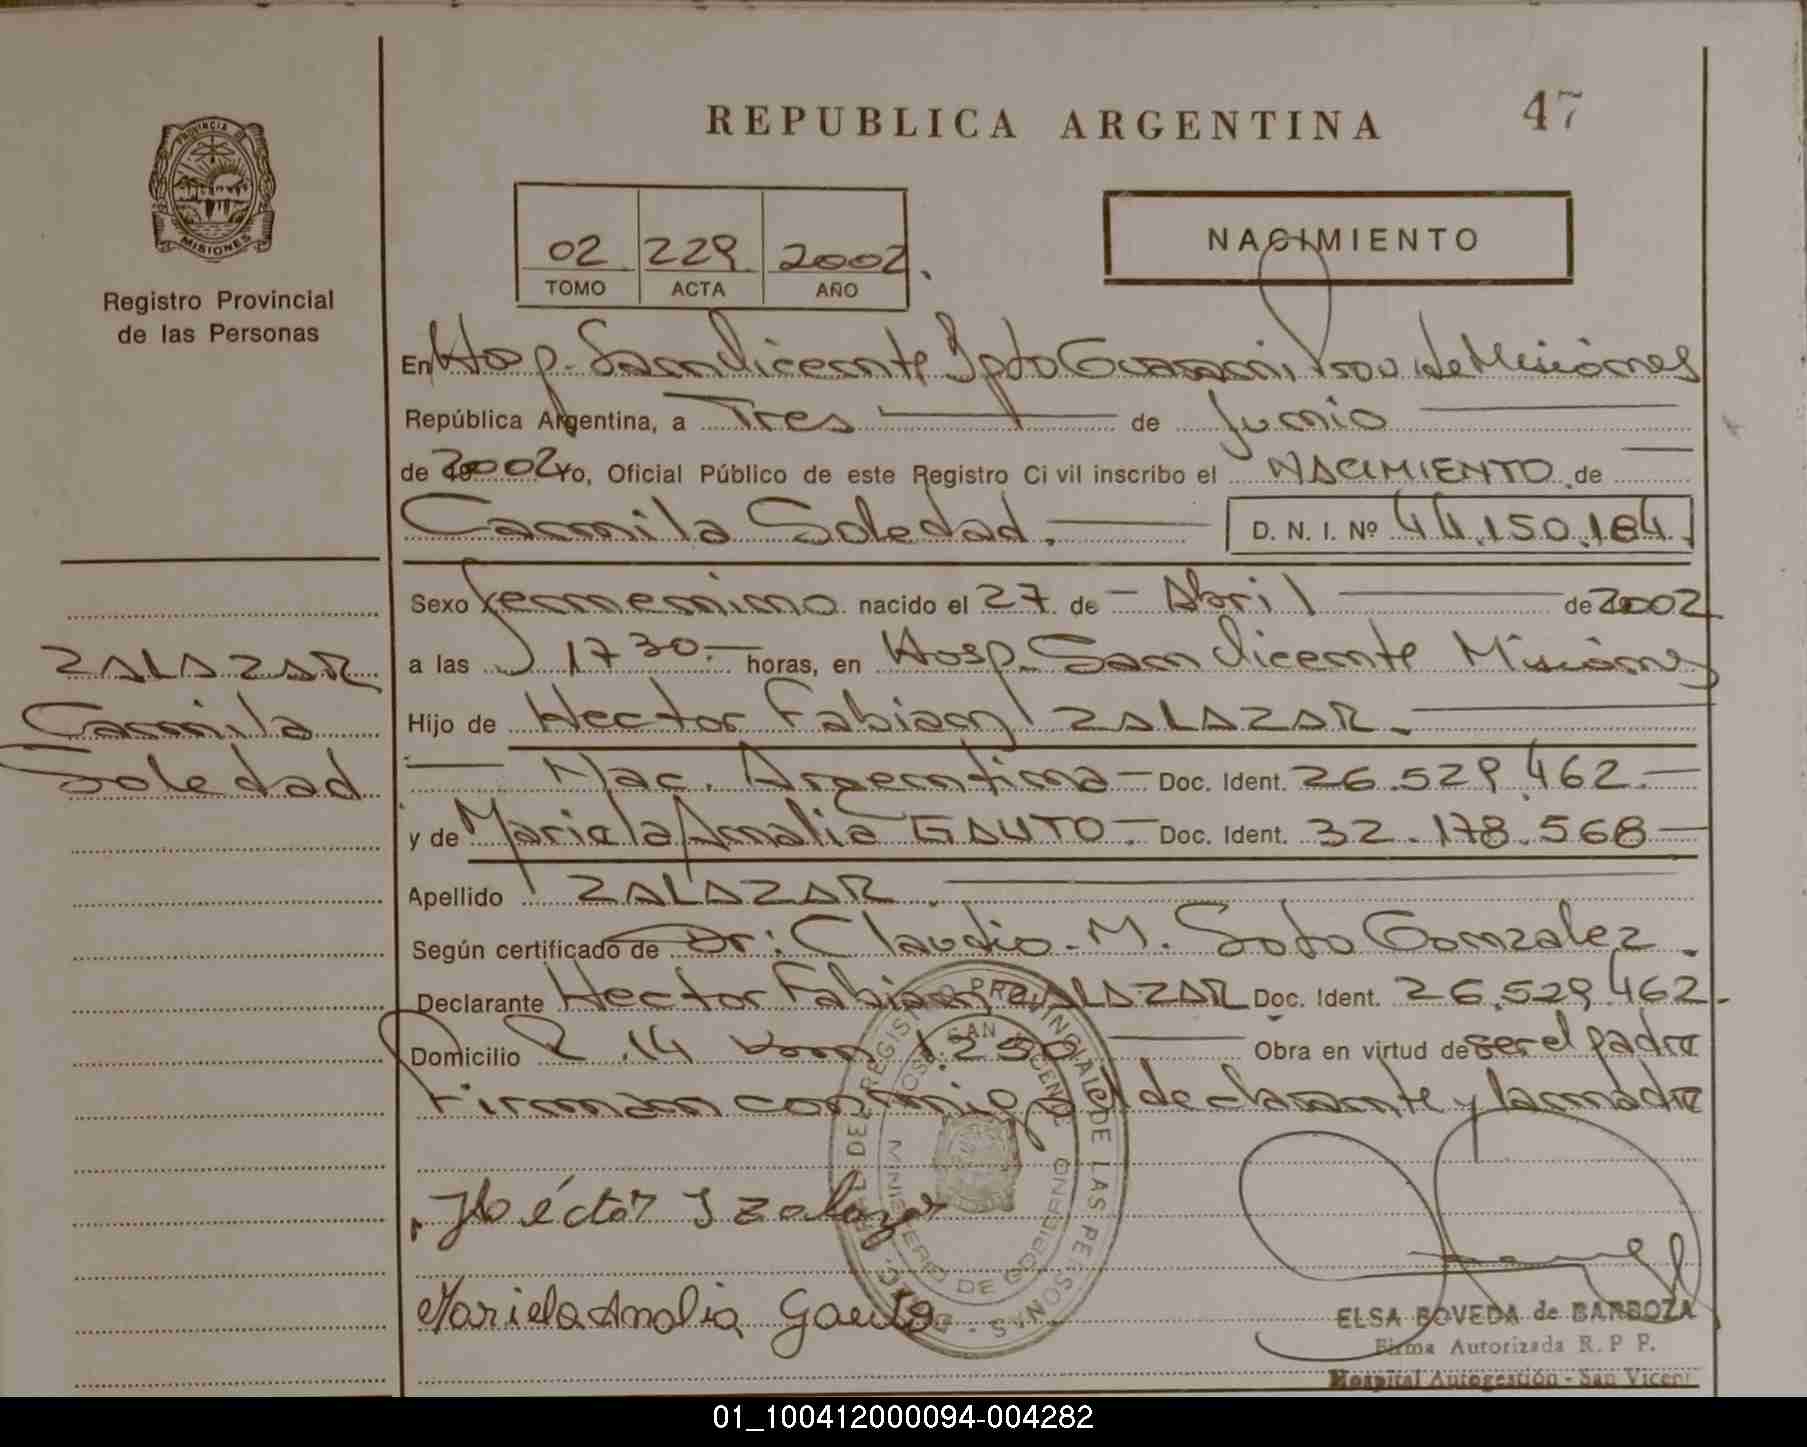 REPUBLICA ARGENTINA
47
PROVINCIA DE
MISIONES
Registro Provincial
de las Personas
02 229 2002.
TOMO ACTA AÑO
NACIMIENTO
En Hosp. San Vicente Dpto Guarani, Prov. de Misiones
República Argentina, a Tres de Junio
de 2002 Yo, Oficial Público de este Registro Civil inscribo el NACIMIENTO de
Camila Soledad. D. N. I. Nº 44.150.184.
Sexo femenino nacido el 27 de Abril de 2002
a las 17 30 horas, en Hosp. San Vicente Misiones
Hijo de Hector Fabian ZALAZAR.
Nac. Argentina Doc. Ident. 26.529.462.
y de Mariela Analia GAUTO Doc. Ident. 32.178.568
Apellido ZALAZAR.
Según certificado de Dr: Claudio M. Soto Gonzalez.
Declarante Hector Fabian ZALAZAR Doc. Ident. 26.529.462.
Domicilio R. 14 km 1.290 Obra en virtud de ser el padre
Firman conmigo el declarante y la madre
ZALAZAR
Camila
Soledad
Héctor F Zalazar
Mariela Analia Gauto
REGISTRO PROVINCIAL DE LAS PERSONAS
HOSP. SAN VICENTE
MINISTERIO DE GOBIERNO
ELSA BOVEDA de BARBOZA
Firma Autorizada R. P. P.
Hospital Autogestión - San Vicent
01_100412000094-004282